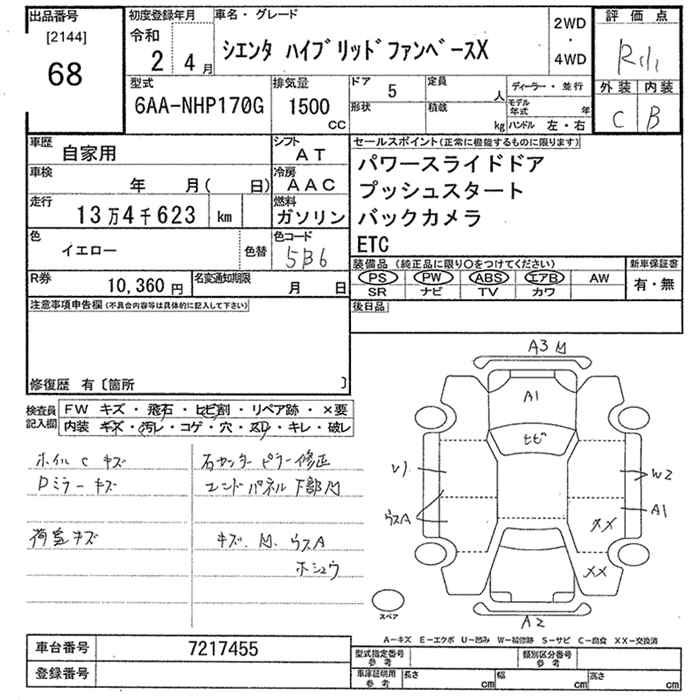 出品番号
[2144]
68
初度登録年月
令和
2年 4月
車名・グレード
シエンタ ハイブリッドファンベースX
2WD
・
4WD
評価点
外装 内装
C B
型式
6AA-NHP170G
排気量
1500
CC
ドア 5
定員 人
形状
積載 kg
ディーラー・並行
モデル年式 年
ハンドル 左・右
車歴
自家用
シフト
AT
車検
年 月( 日)
冷房
AAC
走行
13万4千623 km
燃料
ガソリン
色
イエロー
色替
色コード
5B6
R券
10,360円
名変通知期限
月 日
セールスポイント(正常に機能するものに限ります)
パワースライドドア
プッシュスタート
バックカメラ
ETC
装備品(純正品に限り○をつけてください)
PS PW ABS エアB AW
SR ナビ TV カワ
新車保証書
有・無
後日品
注意事項申告欄(不具合内容等は具体的に記入して下さい)
修復歴 有〔箇所 〕
検査員記入欄
FW キズ・飛石・ヒビ割・リペア跡・×要
内装 キズ・汚レ・コゲ・穴・スレ・キレ・破レ
ホイルC キズ
Dミラーキズ
荷室キズ
右センターピラー修正
エンドパネル下部凹
キズ、凹、ウスA
ホシュウ
A3 凹
A1
ヒビ
V1
ウスA
W2
A1
××
××
スペア
A2
A-キズ E-エクボ U-凹み W-補修跡 S-サビ C-腐食 XX-交換済
車台番号 7217455
登録番号
型式指定番号
参考
類別区分番号
参考
車庫証明用
参考
長さ cm
幅 cm
高さ cm